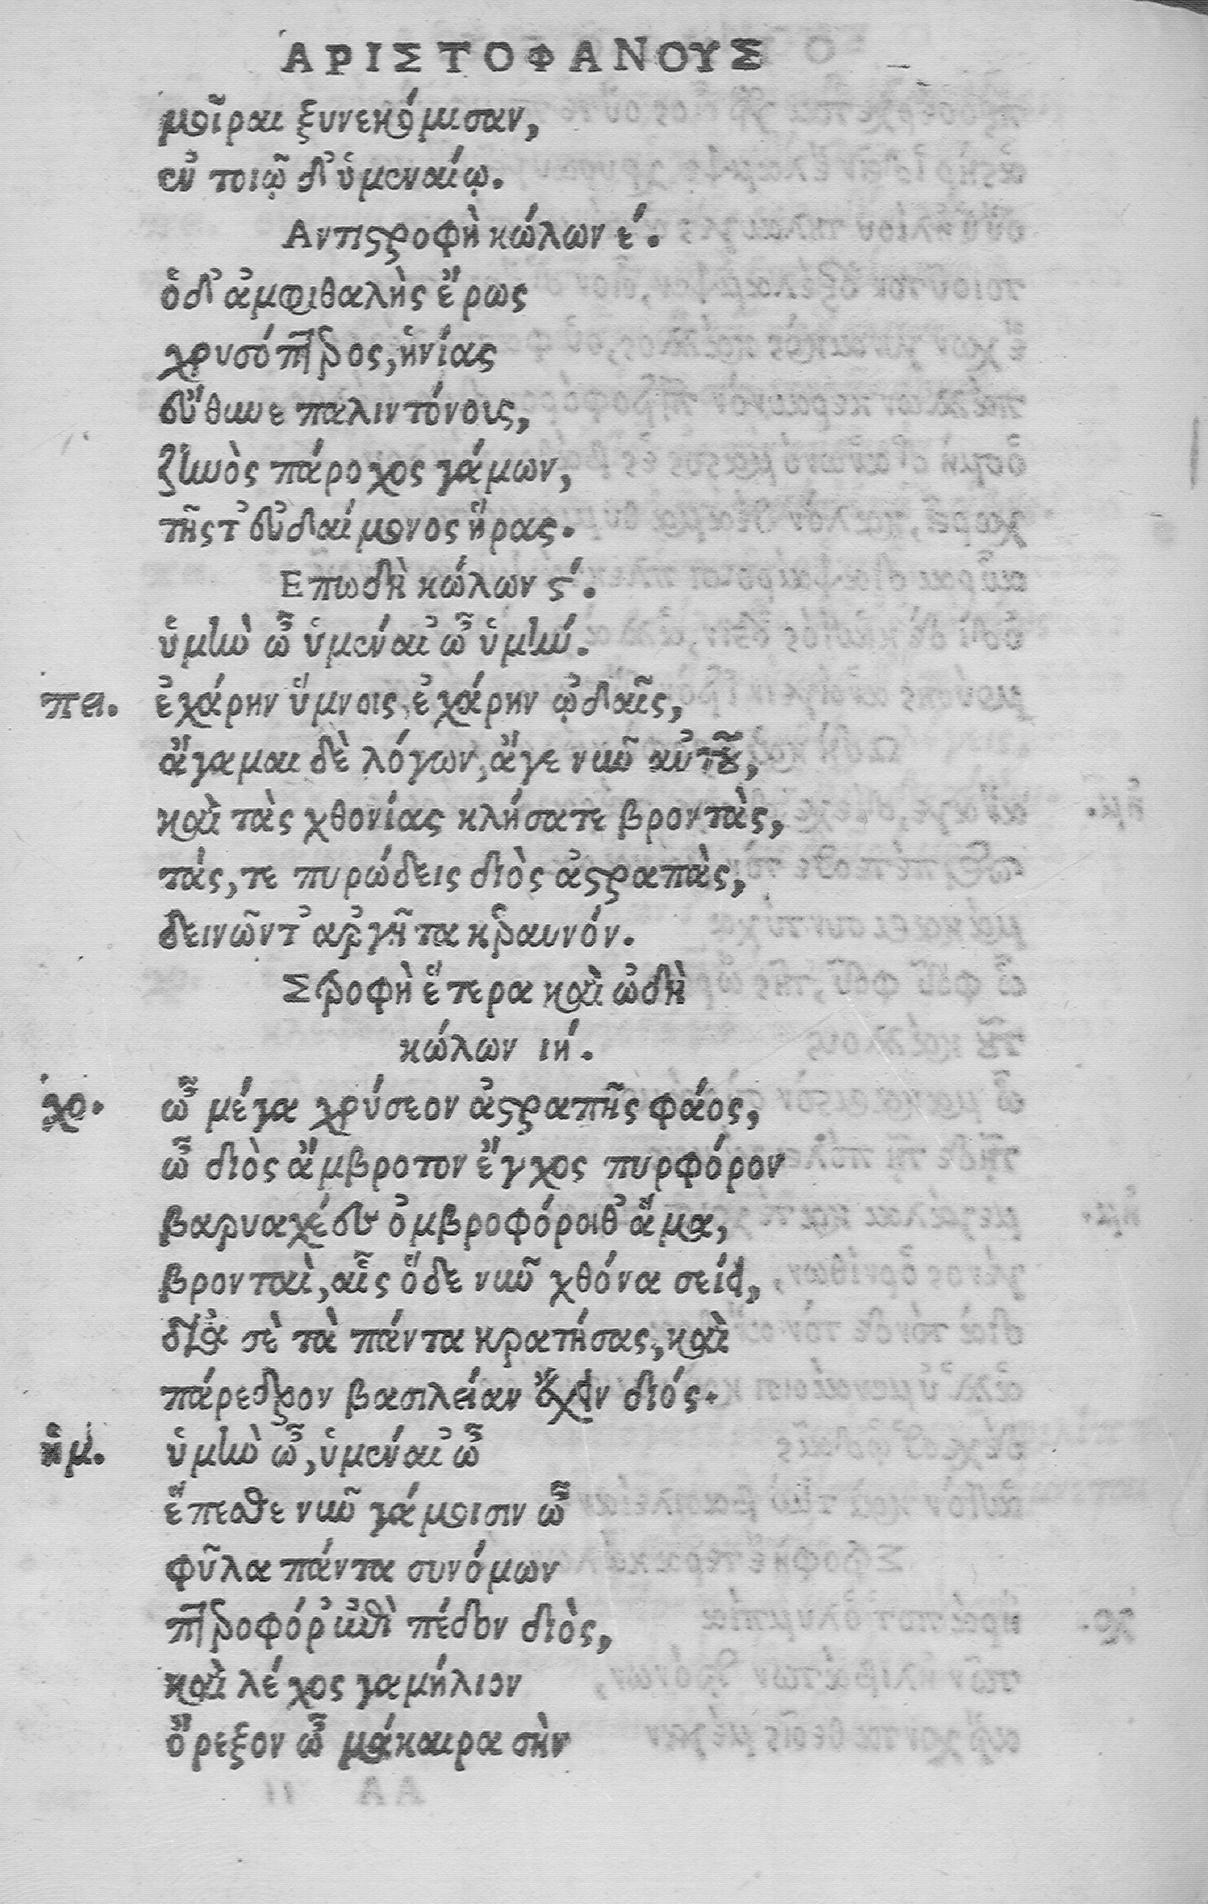 ΑΡΙΣΤΟΦΑΝΟΥΣ
μοῖραι ξυνεκόμισαν,
ἐν τοιῷ δ' ὑμεναίῳ.
Αντιστροφὴ κώλων ε'.
ὁ δ' ἀμφιθαλὴς ἔρως
χρυσόπτερος, ἡνίας
εὔθυνε παλιντόνοις,
ζηνὸς πάροχος γάμων,
τῆς τ' εὐδαίμονος ἥρας.
Επωδὴ κώλων ϛ'.
ὑμὴν ὦ ὑμέναι' ὦ ὑμήν.
πει. ἐχάρην ὕμνοις, ἐχάρην ᾠδαῖς,
ἄγαμαι δὲ λόγων, ἄγε νῦν αὐτοῦ,
καὶ τὰς χθονίας κλήσατε βροντὰς,
τάς, τε πυρώδεις διὸς ἀστραπὰς,
δεινῶν τ' ἀργῆτα κεραυνόν.
Στροφὴ ἕτερα καὶ ὠδὴ
κώλων ιή.
χο. ὦ μέγα χρύσεον ἀστραπῆς φάος,
ὦ διὸς ἄμβροτον ἔγχος πυρφόρον
βαρυαχέες ὀμβροφόροιθ' ἅμα,
βρονταὶ, αἷς ὅδε νῦν χθόνα σείει,
διὰ σὲ τὰ πάντα κρατήσας, καὶ
πάρεδρον βασιλείαν ἔχει διός.
ἡμ. ὑμὴν ὦ, ὑμέναι' ὦ
ἕπεσθε νῦν γάμοισιν ὦ
φῦλα πάντα συνόμων
πτεροφόρ' ἐπὶ πέδον διὸς,
καὶ λέχος γαμήλιον
ὄρεξον ὦ μάκαιρα σὴν